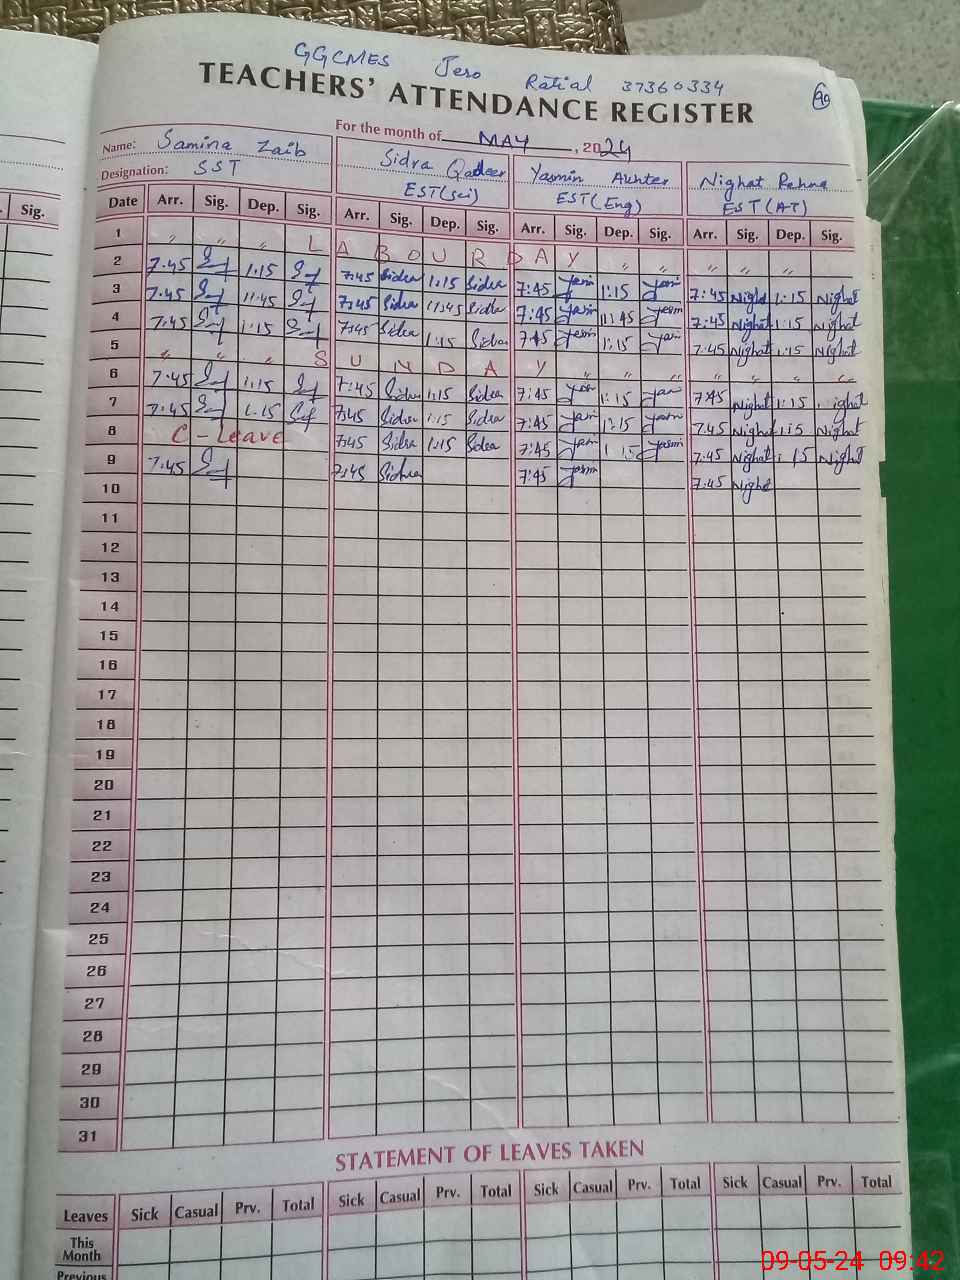 GGCMES Jero Ratial 37360334
99
TEACHERS' ATTENDANCE REGISTER
For the month of MAY, 2024
Name: Samina Zaib Sidra Qadeer Yasmin Akhter Nighat Rehna
Designation: SST EST(Sci) EST(Eng) EST(AT)
Sig. Date Arr. Sig. Dep. Sig. Arr. Sig. Dep. Sig. Arr. Sig. Dep. Sig. Arr. Sig. Dep. Sig.
1 " " " L A B O U R D A Y " " " " "
2 7.45 1.15 7.45 Sidra 1.15 Sidra 7:45 1:15 7:45 Nighat 1:15 Nighat
3 7.45 11.45 7.45 Sidra 11.45 Sidra 7:45 11:45 7:45 Nighat 1:15 Nighat
4 7.45 1.15 7.45 Sidra 1.15 Sidra 7:45 1:15 7.45 Nighat 1:15 Nighat
5 " " " S U N D A Y " " " " " " "
6 7.45 1.15 7:45 Sidra 1:15 Sidra 7:45 1:15 7:45 Nighat 1:15 ighat
7 7.45 1.15 7.45 Sidra 1:15 Sidra 7:45 1:15 7.45 Nighat 1:15 Nighat
8 C-Leave 7.45 Sidra 1:15 Sidra 7:45 1:15 Yasmin 7:45 Nighat 1:15 Nighat
9 7.45 7:45 Sidra 7:45 Yasmin 7:45 Nighat
10
11
12
13
14
15
16
17
18
19
20
21
22
23
24
25
26
27
28
29
30
31
STATEMENT OF LEAVES TAKEN
Leaves Sick Casual Prv. Total Sick Casual Prv. Total Sick Casual Prv. Total Sick Casual Prv. Total
This
Month
Previous
09-05-24 09:42